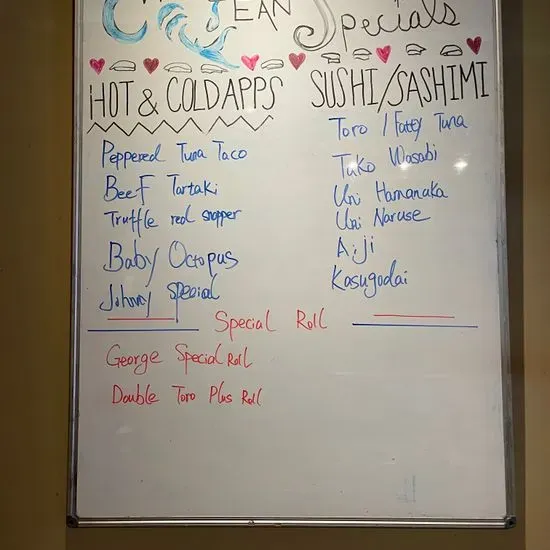 EAN Specials
HOT & COLD APPS
Peppered Tuna Taco
Beef Tartaki
Truffle red snapper
Baby Octopus
Johnny Special
SUSHI/SASHIMI
Toro / Fatty Tuna
Tako Wasabi
Uni Hamanaka
Uni Naruse
Aiji
Kasugodai
Special Roll
George Special Roll
Double Toro Plus Roll